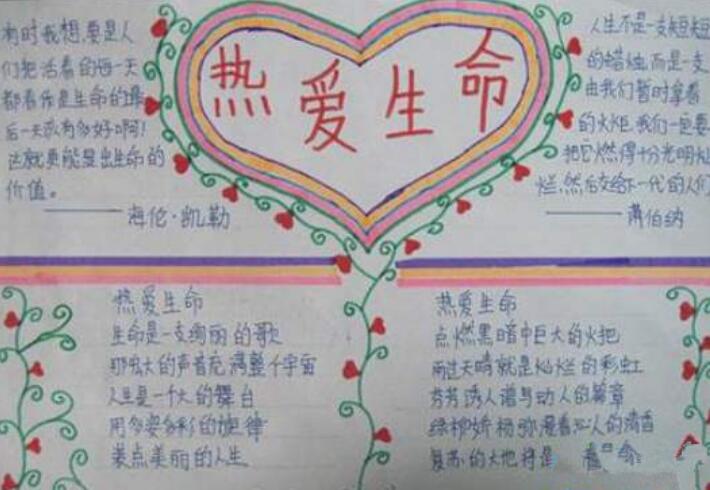 热爱生命
有时我想,要是人
们把活着的每一天
都看作是生命的最
后一天该有多好啊!
这就更能显出生命的
价值。
——海伦·凯勒
人生不是一支短短
的蜡烛,而是一支
由我们暂时拿着
的火炬,我们一定要
把它燃得十分光明灿
烂,然后交给下一代的人们
——萧伯纳
热爱生命
生命是一支绚丽的歌
那宏大的声音充满整个宇宙
人生是一个大的舞台
用多姿多彩的旋律
装点美丽的人生
热爱生命
点燃黑暗中巨大的火把
雨过天晴就是灿烂的彩虹
芬芳诱人谱写动人的篇章
绿柳娇杨弥漫着沁人的清香
复苏的大地将是